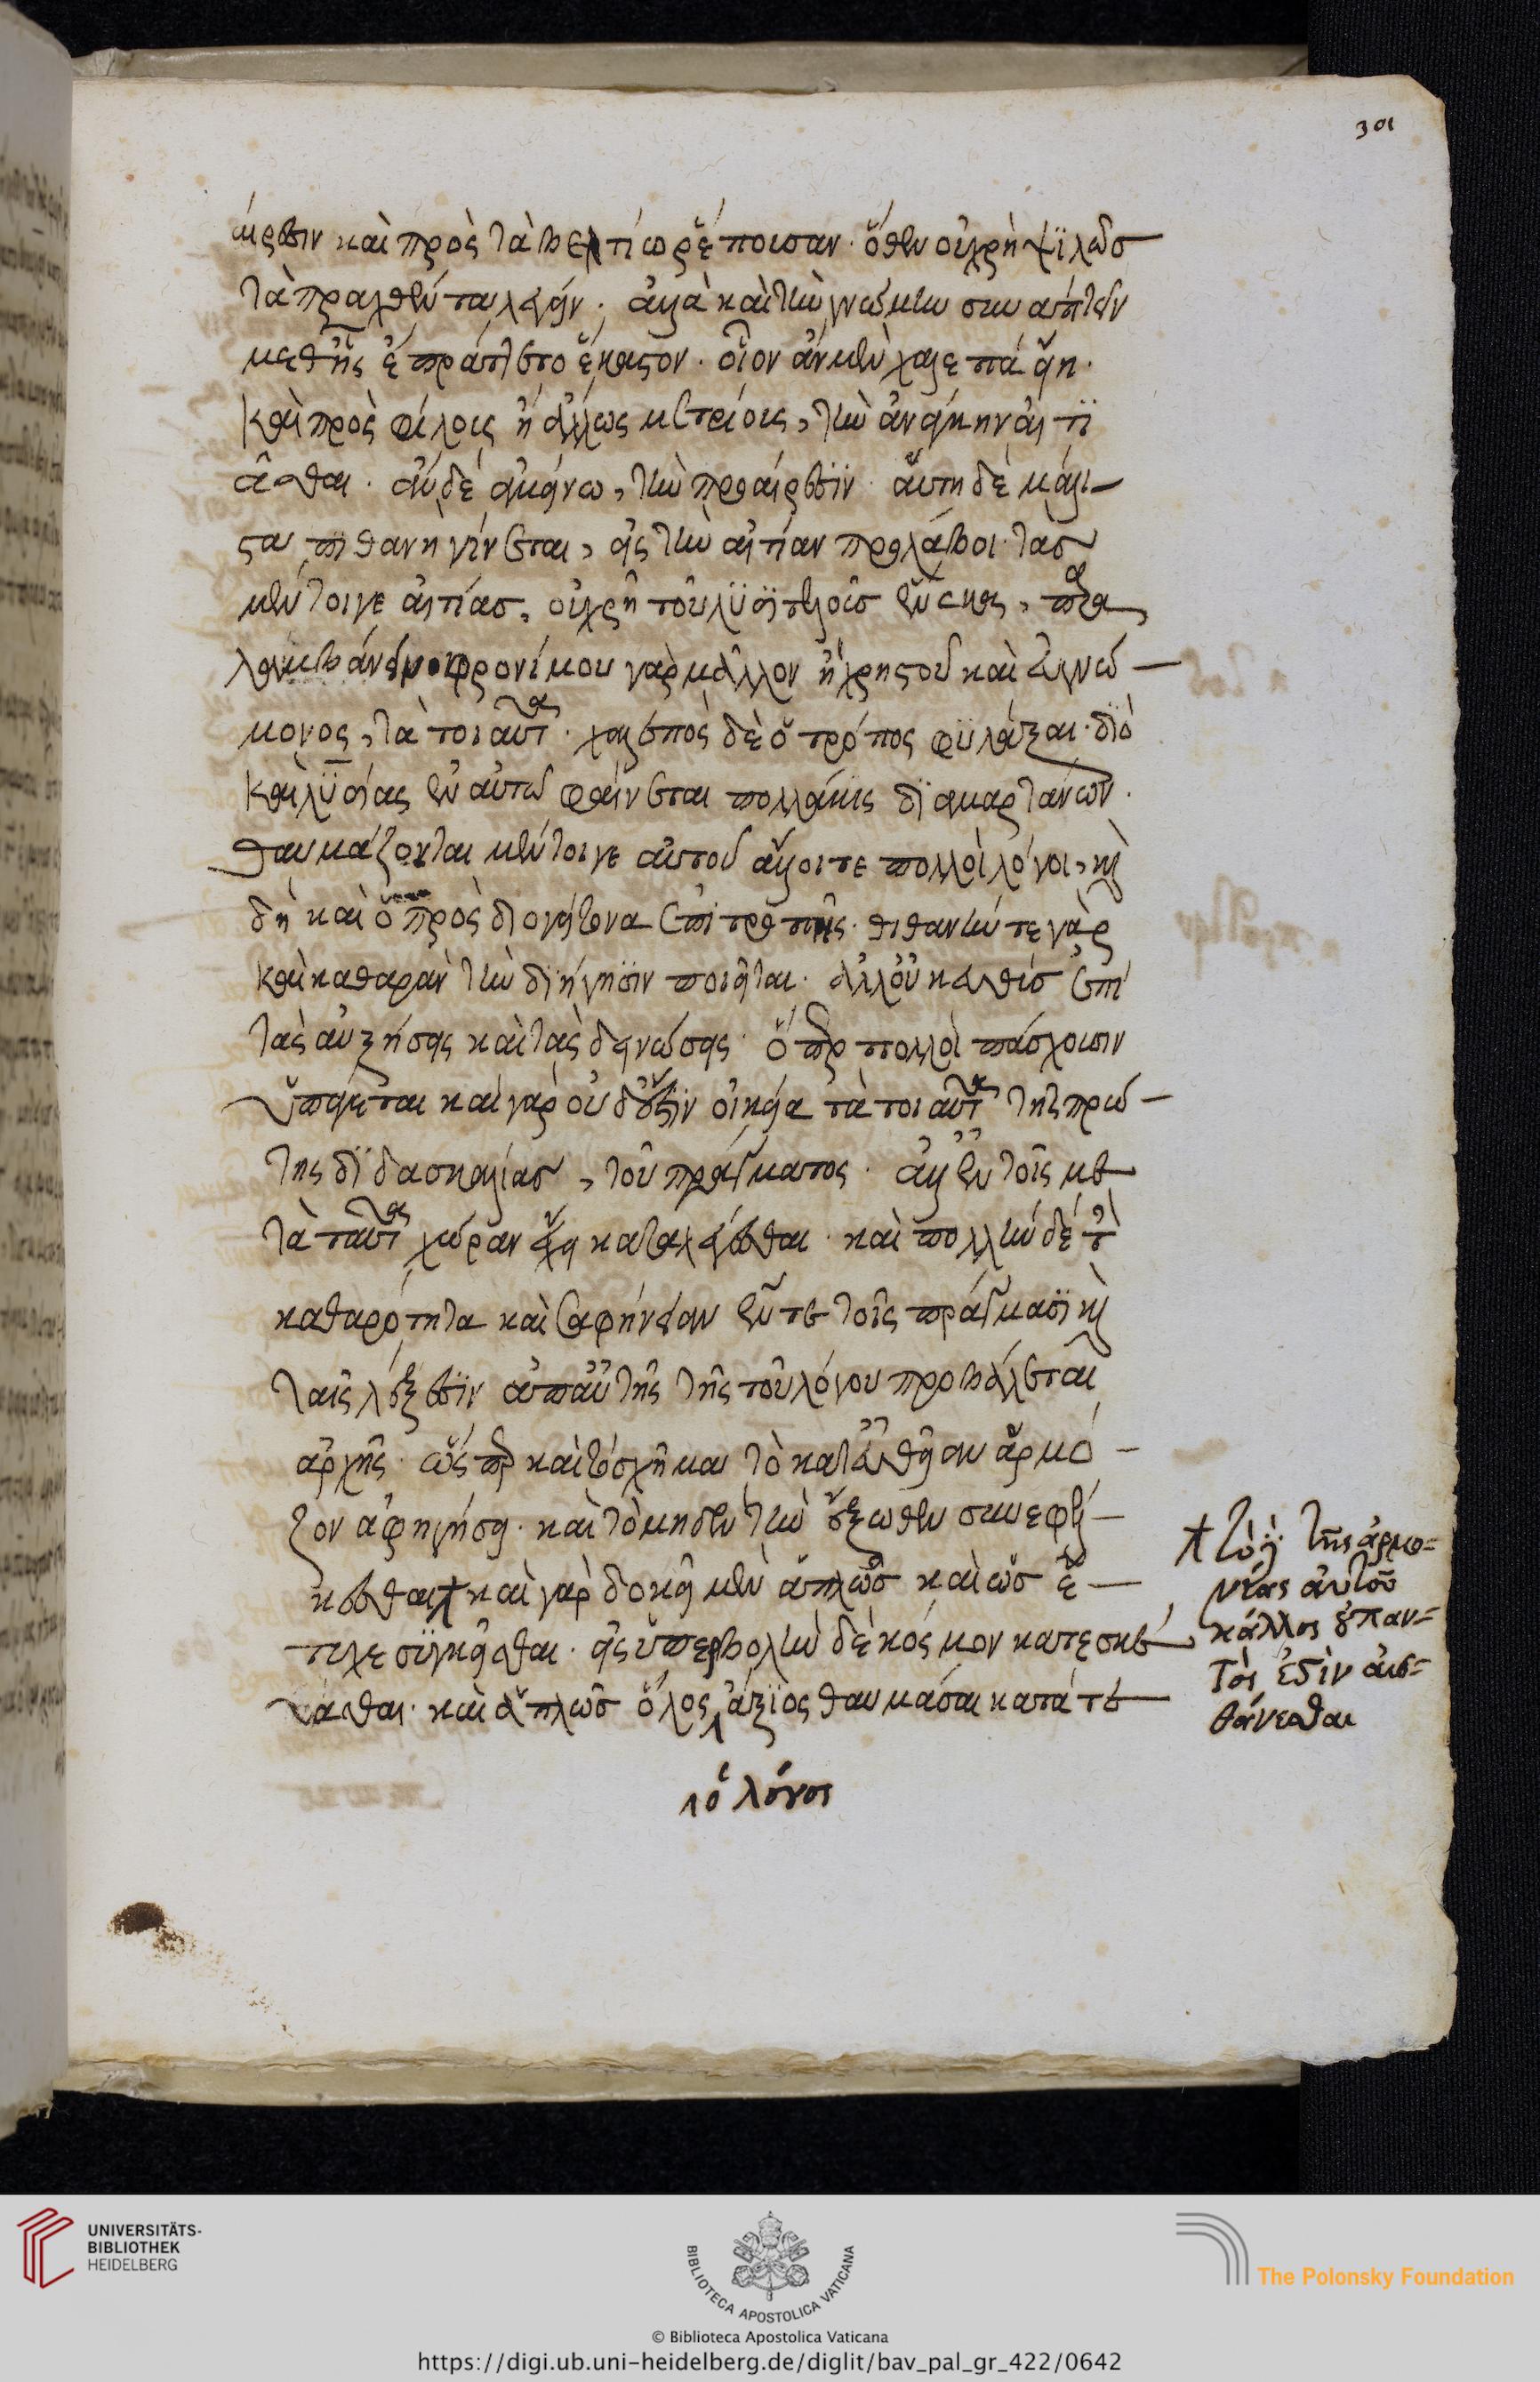 301
αίρεσιν καὶ πρὸς τὰ βελτίω ῥέπουσαν· ὅθεν οὐ χρὴ ψϊλῶσ
τὰ πραχθέντα λέγειν· ἀλλὰ καὶ τὴν γνώμην συνάπτειν
μεθ' ἧς ἐπράττετο ἕκαστον· οἷον ἂν μὲν χαλεπὰ ἦ·
καὶ πρὸς φίλους ἢ ἄλλως μετρίους, τὴν ἀνάγκην αἰτϊ
ᾶσθαι· ἂν δὲ ἐκείνω, τὴν προαίρεσϊν· αὕτη δὲ μάλι-
στα πιθανὴ γίνεται, εἰς τὴν αἰτίαν προλάβοι· τὰσ
μέντοιγε αἰτίασ, οὐ χρὴ τοῦ λϋσιτελοῦσ ἕνεκα,
λαμβάνειν φρονίμου γὰρ μᾶλλον ἢ χρηστοῦ καὶ εὐγνώ-
μονος, τὰ τοιαῦτα· χαλεπὸς δὲ ὁ τρόπος φϋλάξαι· διὸ
καὶ λϋσίας ἐν αὐτῶ φαίνεται πολλάκις δϊαμαρτάνων·
θαυμάζονται μέντοιγε αὐτοῦ ἄλλοι τε πολλοὶ λόγοι, καὶ
δὴ καὶ ὁ πρὸς διογείτονα ἐπιτροπῆς· πιθανήν τε γὰρ
καὶ καθαρὰν τὴν διήγησϊν ποιεῖται· ἀλλ' οὐκ εὐθὺσ ἐπὶ
τὰς αὐξήσεις καὶ τὰς δεινώσεις· ὅπερ πολλοὶ πάσχουσιν
ὑπάγεται καὶ γὰρ οὐδ' ἔστϊν οἰκεῖα τὰ τοιαῦτα τῆς πρώ-
της δϊδασκαλίασ, τοῦ πράγματος· ἀλλ' ἐν τοῖς με
τὰ ταῦτα χώραν ἔχει καταλέγεσθαι· καὶ πολλὴν δέ τϊνα
καθαρότητα καὶ σαφήνειαν ἔν τε τοῖς πράγμασϊ καὶ
ταῖς λέξεσϊν ἀπ' αὐτῆς τῆς τοῦ λόγου προβάλλεται
ἀρχῆς· ὥσπερ καὶ τὸ σχῆμα τὸ κατ' εὐθεῖαν ἁρμό-
ζον ἀφηγήσει· καὶ τὸ μηδὲν τῶν ἔξωθεν συνεφέλ-
κεσθαι† καὶ γὰρ δοκεῖ μὲν ἁπλῶσ καὶ ὡσ ἔ-
τυχε σϋγκεῖσθαι· εἰς ὑπερβολὴν δὲ κόσμον κατεσκευ-
άσθαι· καὶ ἁπλῶσ ὅλος ἄξϊος θαυμάσαι κατά τε
ὁ λόγος
† τὸ δὲ τῆς ἁρμο=
νίας αὐτοῦ
κάλλος οὐ παν=
τός ἐστὶν αἰσ=
θάνεσθαι
UNIVERSITÄTS-
BIBLIOTHEK
HEIDELBERG
BIBLIOTECA APOSTOLICA VATICANA
The Polonsky Foundation
© Biblioteca Apostolica Vaticana
https://digi.ub.uni-heidelberg.de/diglit/bav_pal_gr_422/0642